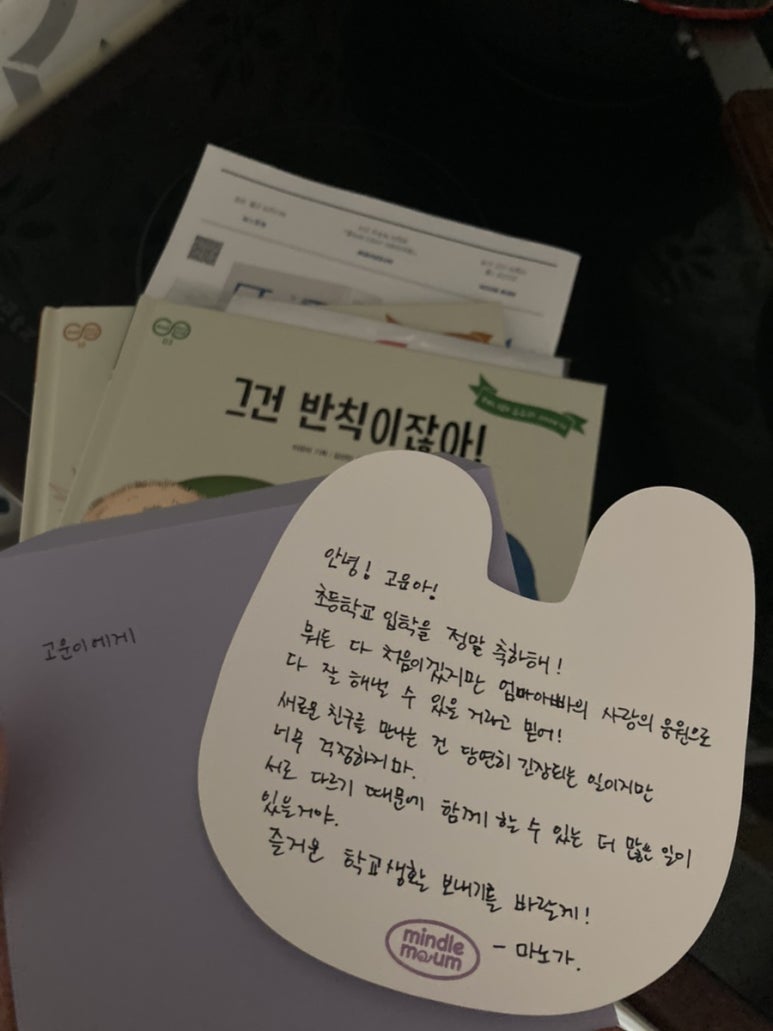 그건 반칙이잖아!
고운이에게
안녕! 고운아!
초등학교 입학을 정말 축하해!
뭐든 다 처음이겠지만 엄마아빠의 사랑의 응원으로
다 잘 해낼 수 있을 거라고 믿어!
새로운 친구를 만나는 건 당연히 긴장되는 일이지만
너무 걱정하지마.
서로 다르기 때문에 함께 할 수 있는 더 많은 일이
있을거야.
즐거운 학교생활 보내기를 바랄게!
- 마노가.
mindle
maum